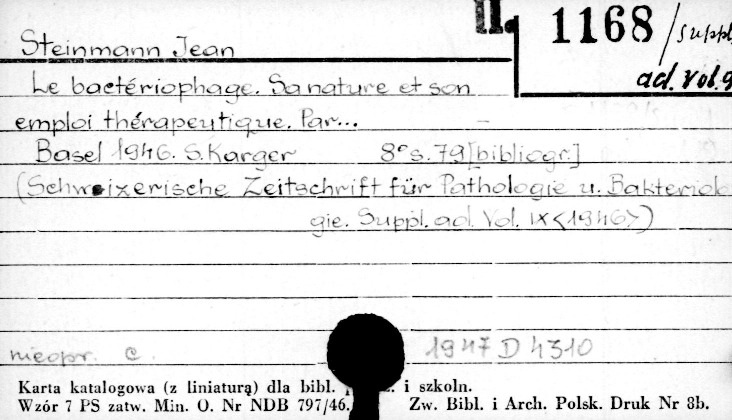 II. 1168/suppl.
ad. Vol. 9
Steinmann Jean
Le bactériophage. Sa nature et son
emploi thérapeutique. Par...
Basel 1946. S. Karger 8° s. 79 [bibliogr.]
(Schweizerische Zeitschrift für Pathologie u. Bakteriolo
gie. Suppl. ad. Vol. IX <1946>)
nieopr. C. 1947 D 4310
Karta katalogowa (z liniaturą) dla bibl. i szkoln.
Wzór 7 PS zatw. Min. O. Nr NDB 797/46. Zw. Bibl. i Arch. Polsk. Druk Nr 3b.